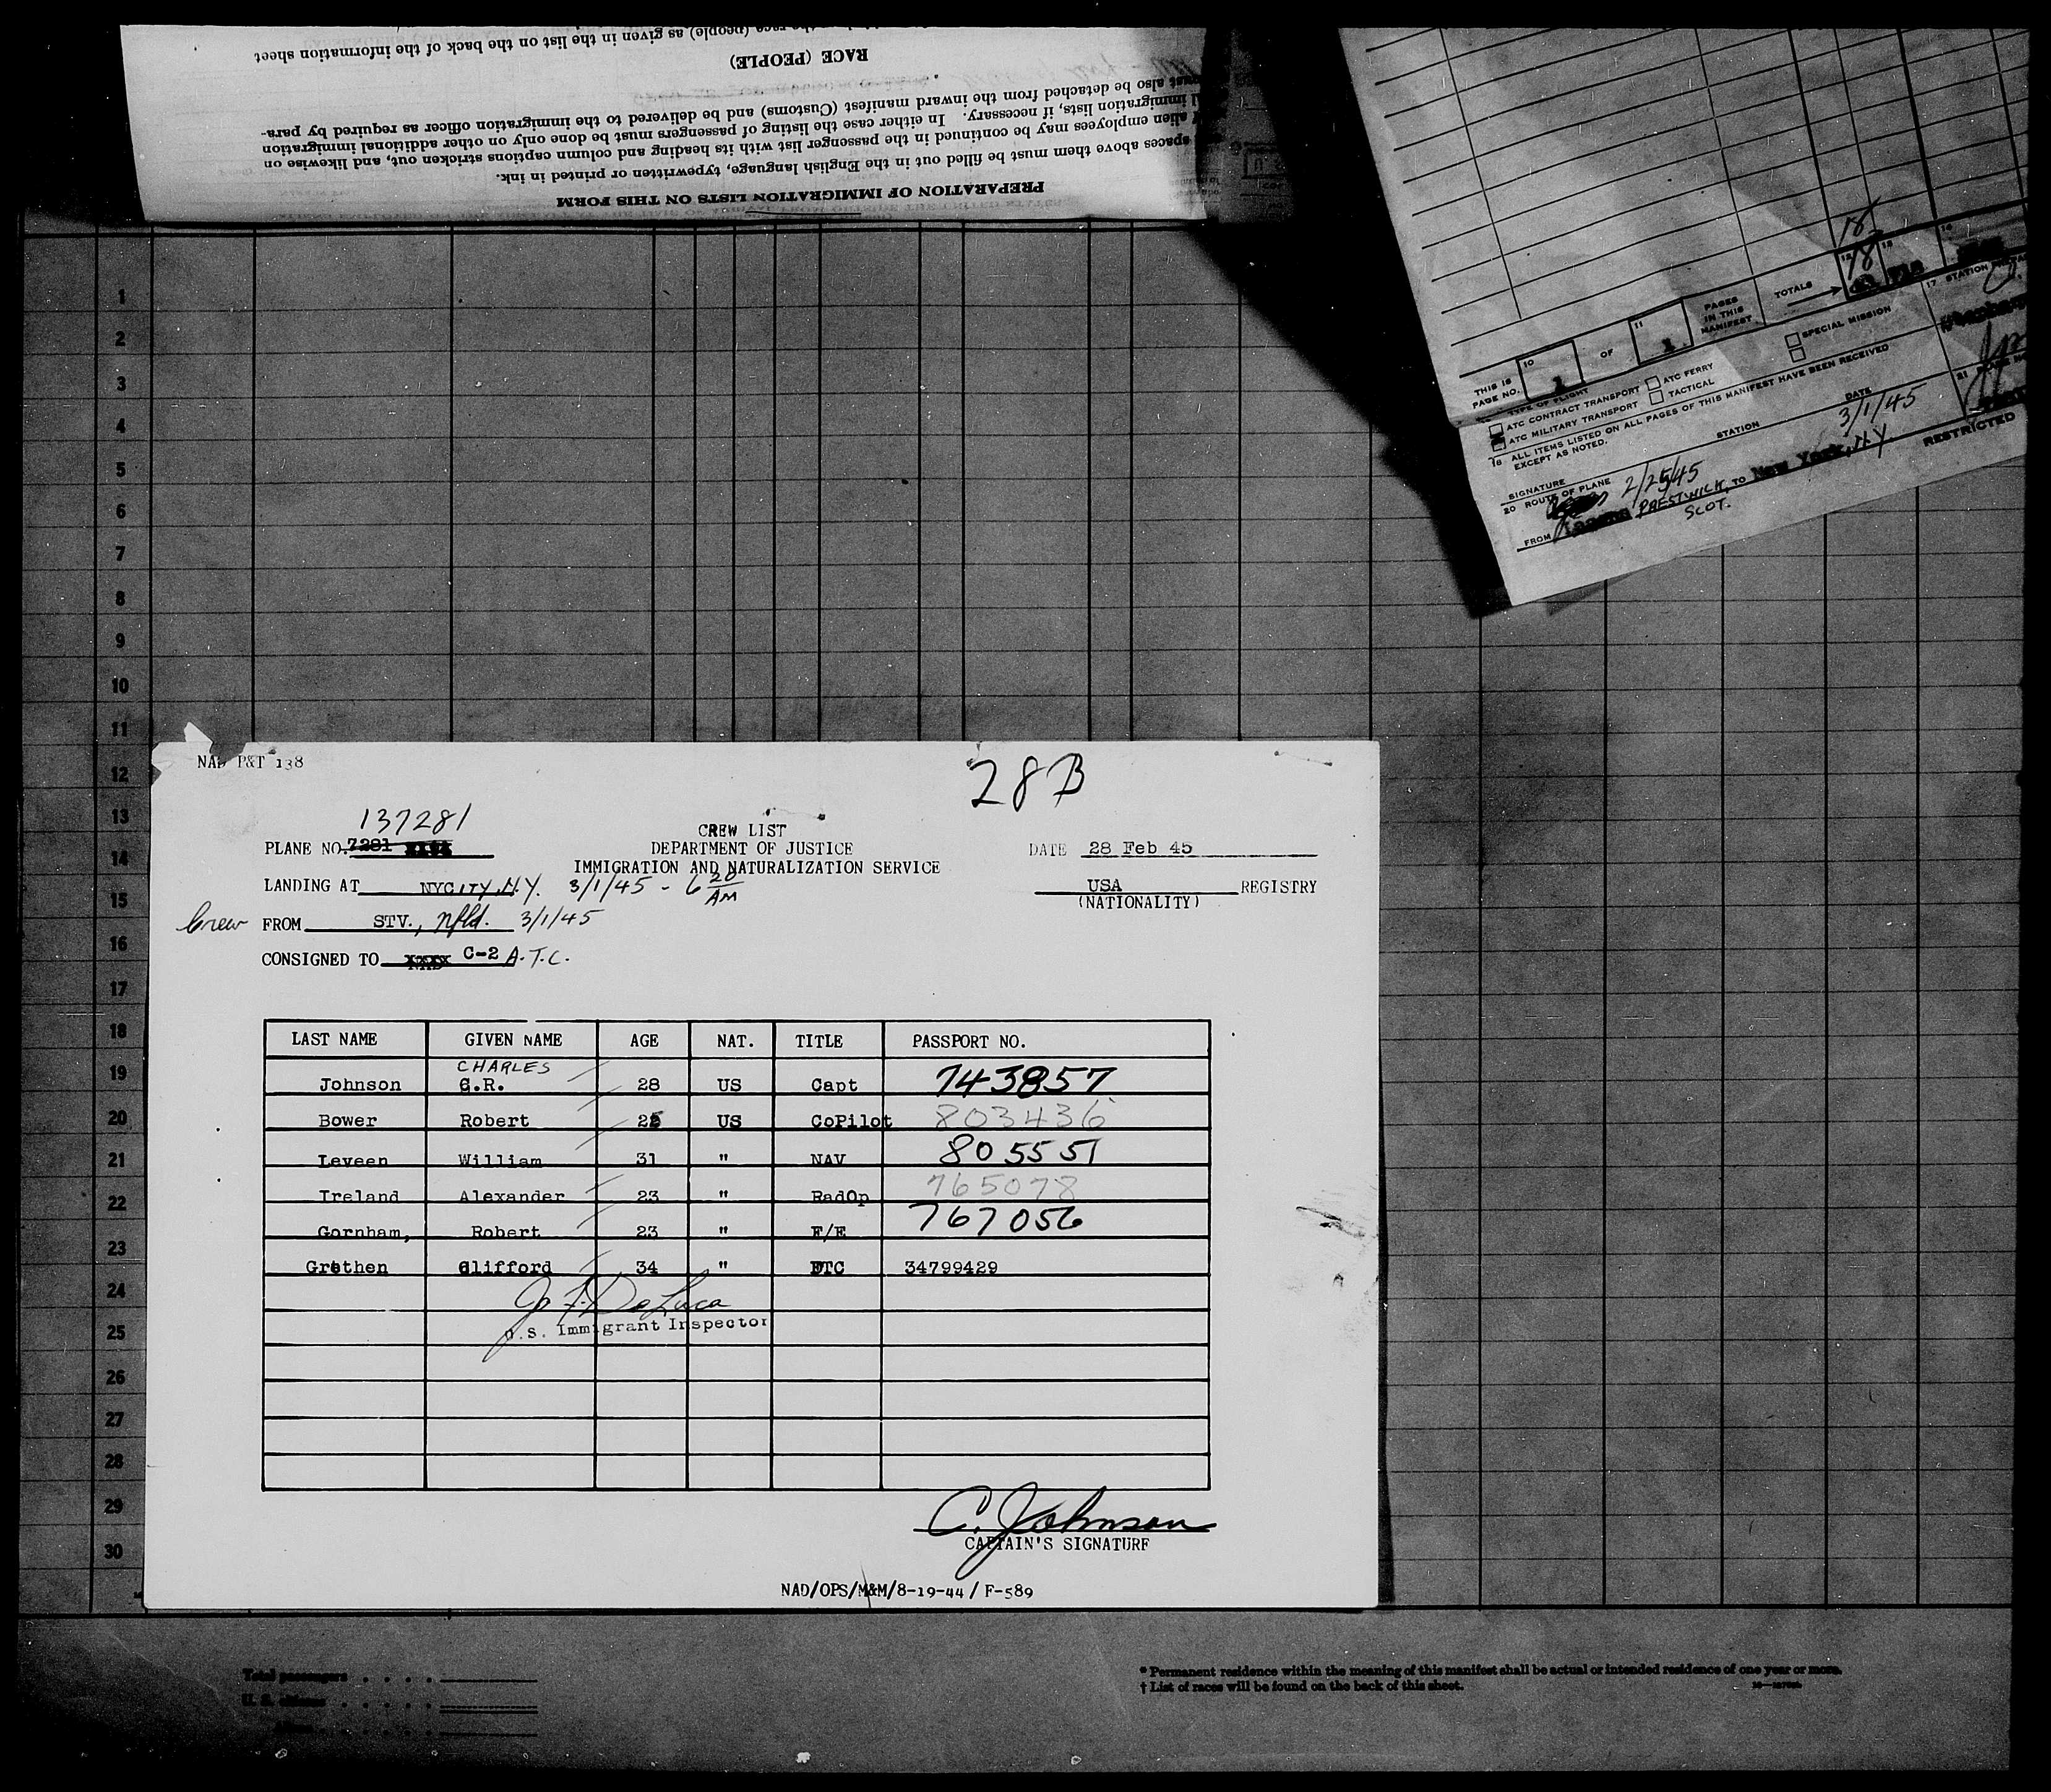 (people) as given in the list on the back of the information sheet
RACE (PEOPLE)
also be detached from the inward manifest (Customs) and be delivered to the immigration officer as required by para-
immigration lists, if necessary. In either case the listing of passengers must be done only on other additional immigration
alien employees may be continued in the passenger list with its heading and column captions stricken out, and likewise on
spaces above them must be filled out in the English language, typewritten or printed in ink.
PREPARATION OF IMMIGRATION LISTS ON THIS FORM
18
18
TOTALS
PAGES IN THIS MANIFEST
THIS IS PAGE NO. 10 1 OF 11 1
17 STATION
TYPE OF FLIGHT
ATC CONTRACT TRANSPORT ATC FERRY SPECIAL MISSION
ATC MILITARY TRANSPORT TACTICAL
ALL ITEMS LISTED ON ALL PAGES OF THIS MANIFEST HAVE BEEN RECEIVED
EXCEPT AS NOTED.
STATION DATE 3/1/45
SIGNATURE
20 ROUTE OF PLANE 2/25/45
FROM PRESTWICK, SCOT. TO New York, N.Y.
RESTRICTED
1
2
3
4
5
6
7
8
9
10
11
12
13
14
15
16
17
18
19
20
21
22
23
24
25
26
27
28
29
30
NAD P&T 138
28B
137281
CREW LIST
PLANE NO. 7281 DEPARTMENT OF JUSTICE DATE 28 Feb 45
IMMIGRATION AND NATURALIZATION SERVICE
LANDING AT NYCITY, N.Y. 3/1/45 - 6 20 AM USA REGISTRY
(NATIONALITY)
Crew FROM STV., Nfld. 3/1/45
CONSIGNED TO XXXX C-2 A.T.C.
LAST NAME GIVEN NAME AGE NAT. TITLE PASSPORT NO.
CHARLES
Johnson C.R. 28 US Capt 743857
Bower Robert 25 US CoPilot 803436
Leveen William 31 " NAV 805551
Ireland Alexander 23 " RadOp 765078
Gornham, Robert 23 " F/E 767056
Grethen Clifford 34 " DTC 34799429
J. F. DeLuca
U.S. Immigrant Inspector
C. Johnson
CAPTAIN'S SIGNATURE
NAD/OPS/M&M/8-19-44/ F-589
Total passengers
U. S. citizens
Aliens
* Permanent residence within the meaning of this manifest shall be actual or intended residence of one year or more.
† List of races will be found on the back of this sheet.